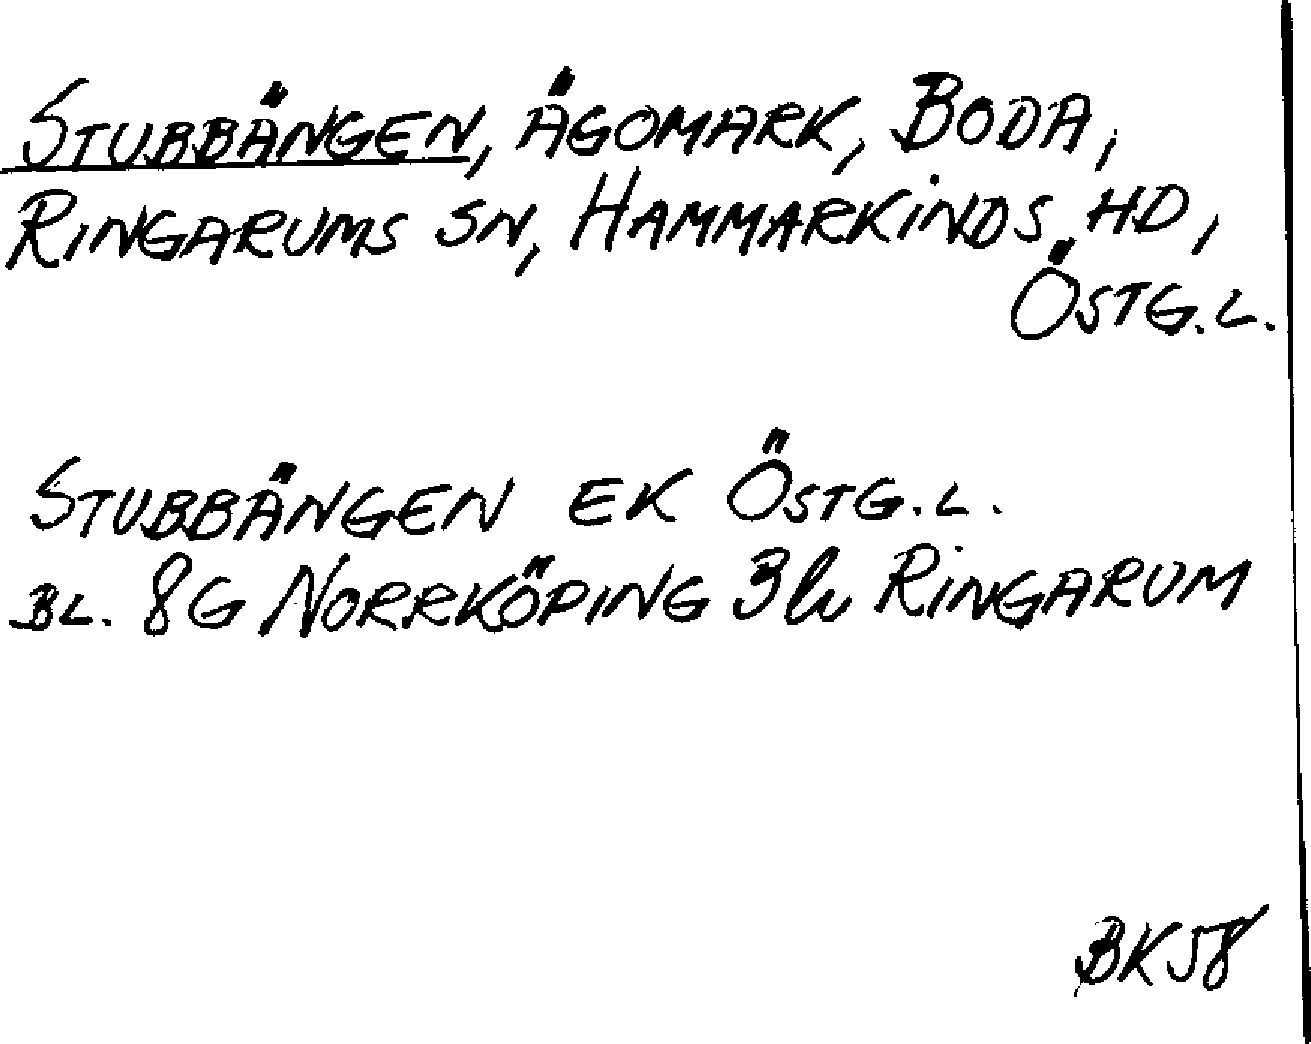 STUBBÄNGEN, ÄGOMARK, BODA,
RINGARUMS SN, HAMMARKINDS HD,
ÖSTG.L.
STUBBÄNGEN EK ÖSTG.L.
BL. 8G NORRKÖPING 3 RINGARUM
BK58